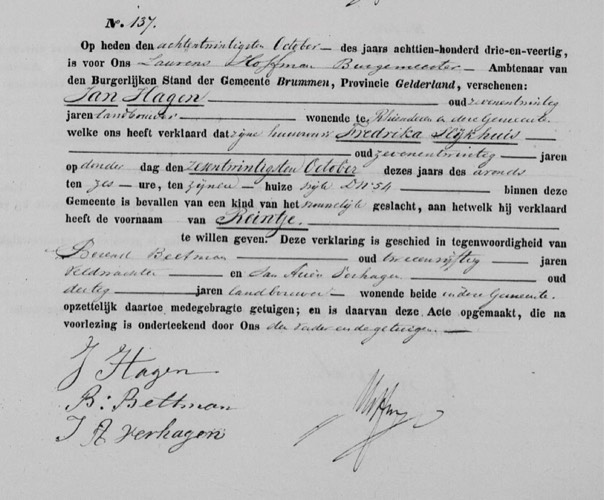 N. 137.
Op heden den achtentwintigsten October – des jaars achttien-honderd drie-en-veertig,
is voor Ons Laurens Hoffman Burgemeester – Ambtenaar van
den Burgerlijken Stand der Gemeente Brummen, Provincie Gelderland, verschenen:
Jan Hagen oud zevenentwintig
jaren landbouwer wonende te Rhienderen in dese Gemeente
welke ons heeft verklaard dat zijne huisvrouw Fredrika Slijkhuis
oud zevenentwintig jaren
op donder dag den zesentwintigsten October dezes jaars des avonds
ten zes – ure, ten zijnen – huize wijk D N 54 binnen deze
Gemeente is bevallen van een kind van het vrouwelijk geslacht, aan hetwelk hij verklaard
heeft de voornaam van Reintje.
te willen geven. Deze verklaring is geschied in tegenwoordigheid van
Berend Bettman oud tweeenvijftig jaren
Veldwachter – en Jan Verhagen oud
dertig jaren landbouwer – wonende beide in dese Gemeente
opzettelijk daartoe medegebragte getuigen; en is daarvan deze Acte opgemaakt, die na
voorlezing is onderteekend door Ons den vader en de getuigen.
J Hagen
B: Bettman
J A Verhagen